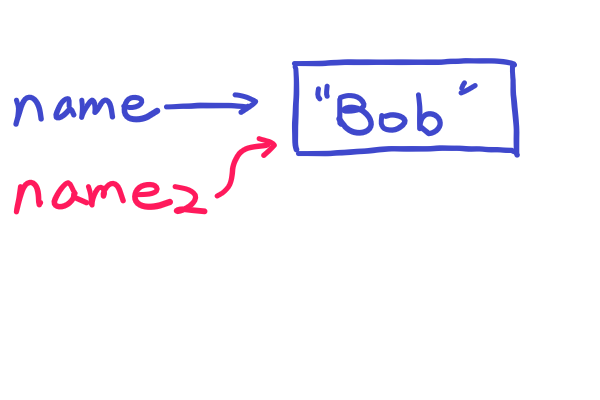 name "Bob"
name2